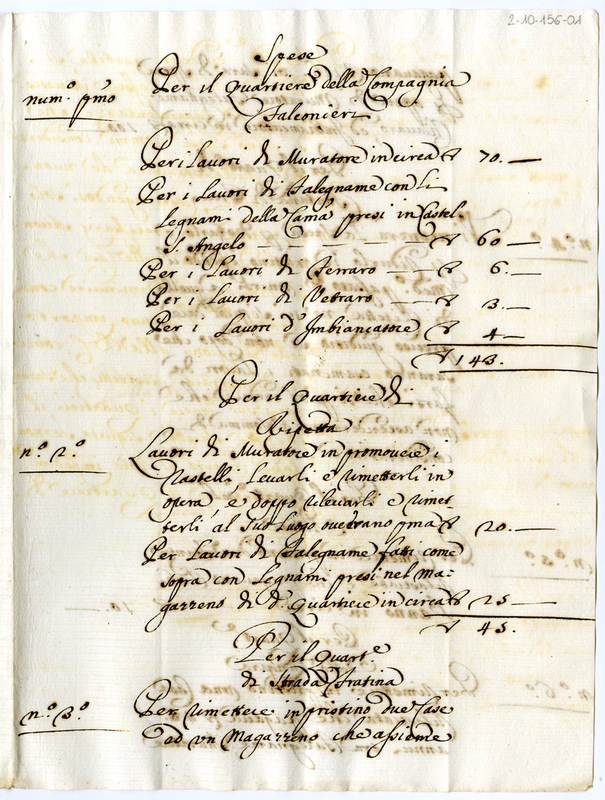 2-10-156-01
Spese
Per il Quartiere della Compagnia
num.º pmo
Falconieri
Per i Lavori di Muratore in circa ∇ 70.—
Per i Lavori di Falegname con li
Legnami della Cama presi in Castel
S. Angelo — — — — — ∇ 60—
Per i Lavori di Ferraro — — ∇ 6.—
Per i Lavori di Vetraro — — ∇ 3.—
Per i Lavori d'Imbiancatore ∇ 4—
∇ 143.
Per il Quartiere di
Ripetta
nº 2º
Lavori di Muratore in promovere i
Rastelli, Levarli e rimetterli in
opera, e doppo rilevarli e rimet-
terli, al suo luogo ove erano pma ∇ 20.—
Per Lavori di Falegname fatti come
sopra con Legnami presi nel Ma-
gazzeno di d.º Quartiere in circa ∇ 25—
∇ 45.
Per il Quart.e
di Strada Fratina
nº 3º
Per rimettere in pristino due Case
ed un Magazzeno che assieme